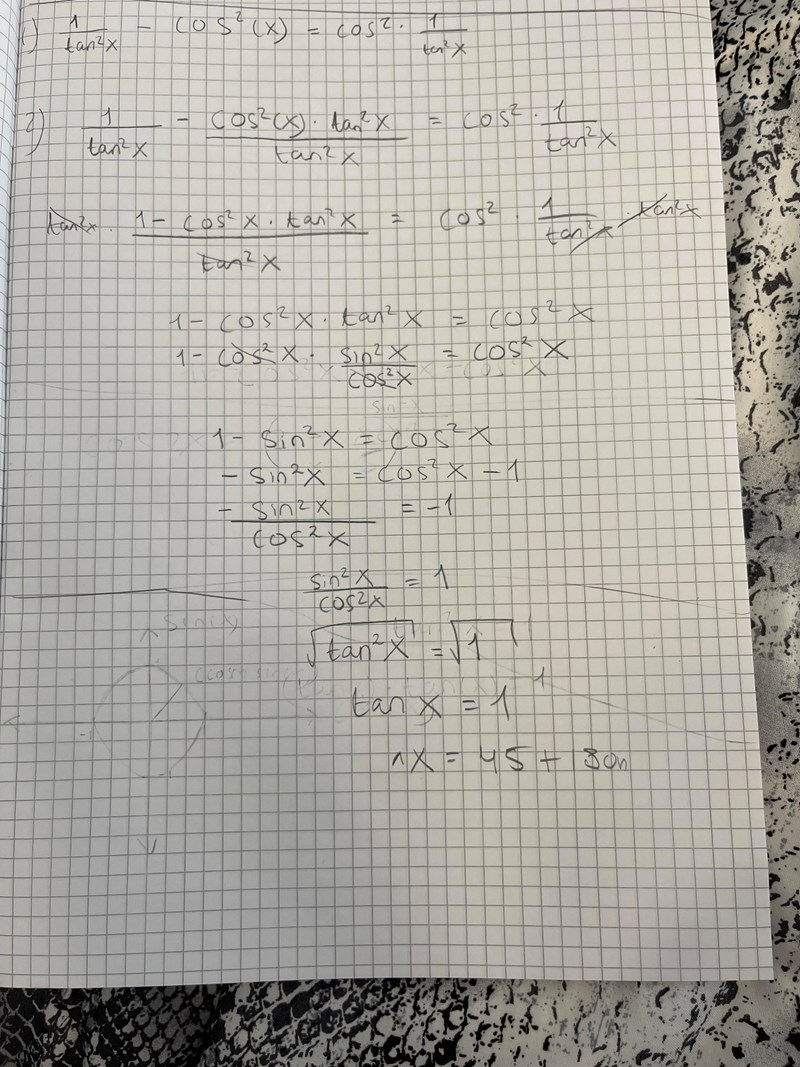 1) 1/tan²x - cos²(x) = cos² · 1/tan²x
2) 1/tan²x - cos²(x) · tan²x/tan²x = cos² · 1/tan²x
tan²x · 1 - cos²x · tan²x/tan²x = cos² · 1/tan²x · tan²x
1 - cos²x · tan²x = cos²x
1 - cos²x · sin²x/cos²x = cos²x
1 - sin²x = cos²x
- sin²x = cos²x - 1
- sin²x/cos²x = -1
sin²x/cos²x = 1
√tan²x = √1
tan x = 1
x = 45 + 180n